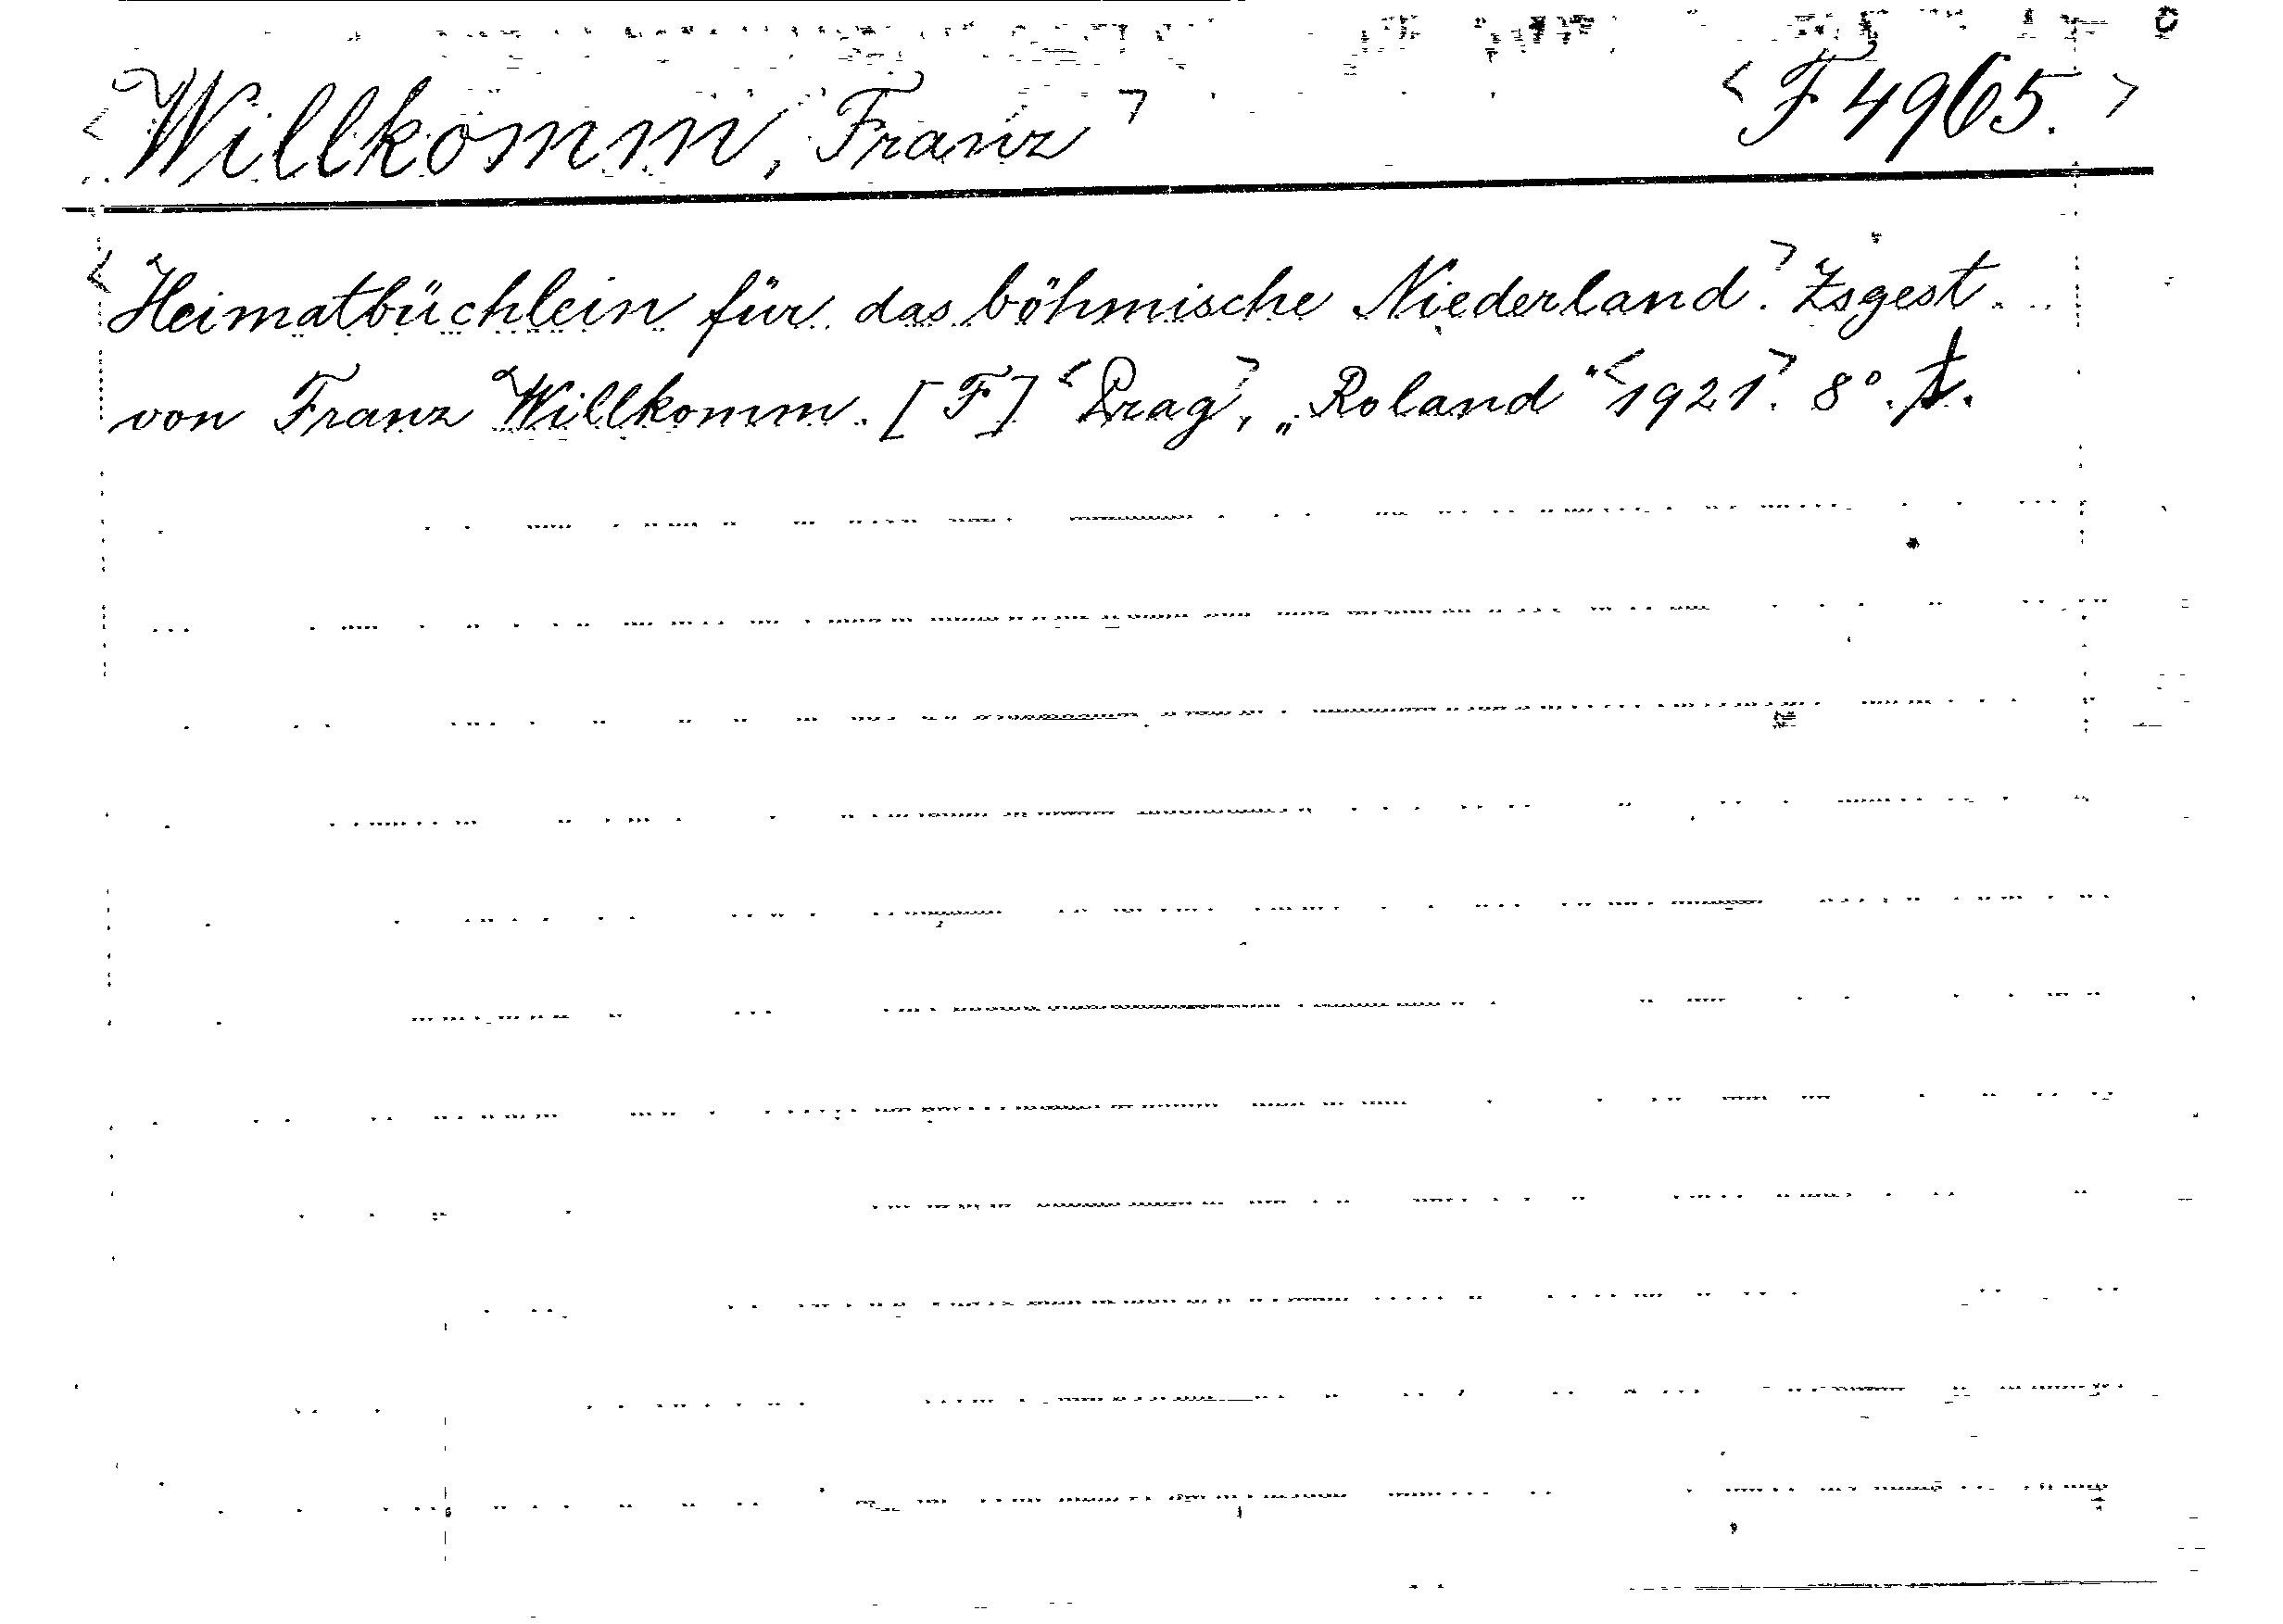 <Willkomm, Franz> <F 4965.>
<Heimatbüchlein für das böhmische Niederland>. Zsgest.
von Franz Willkomm. [F] <Prag>, „Roland“ <1921>. 8°.